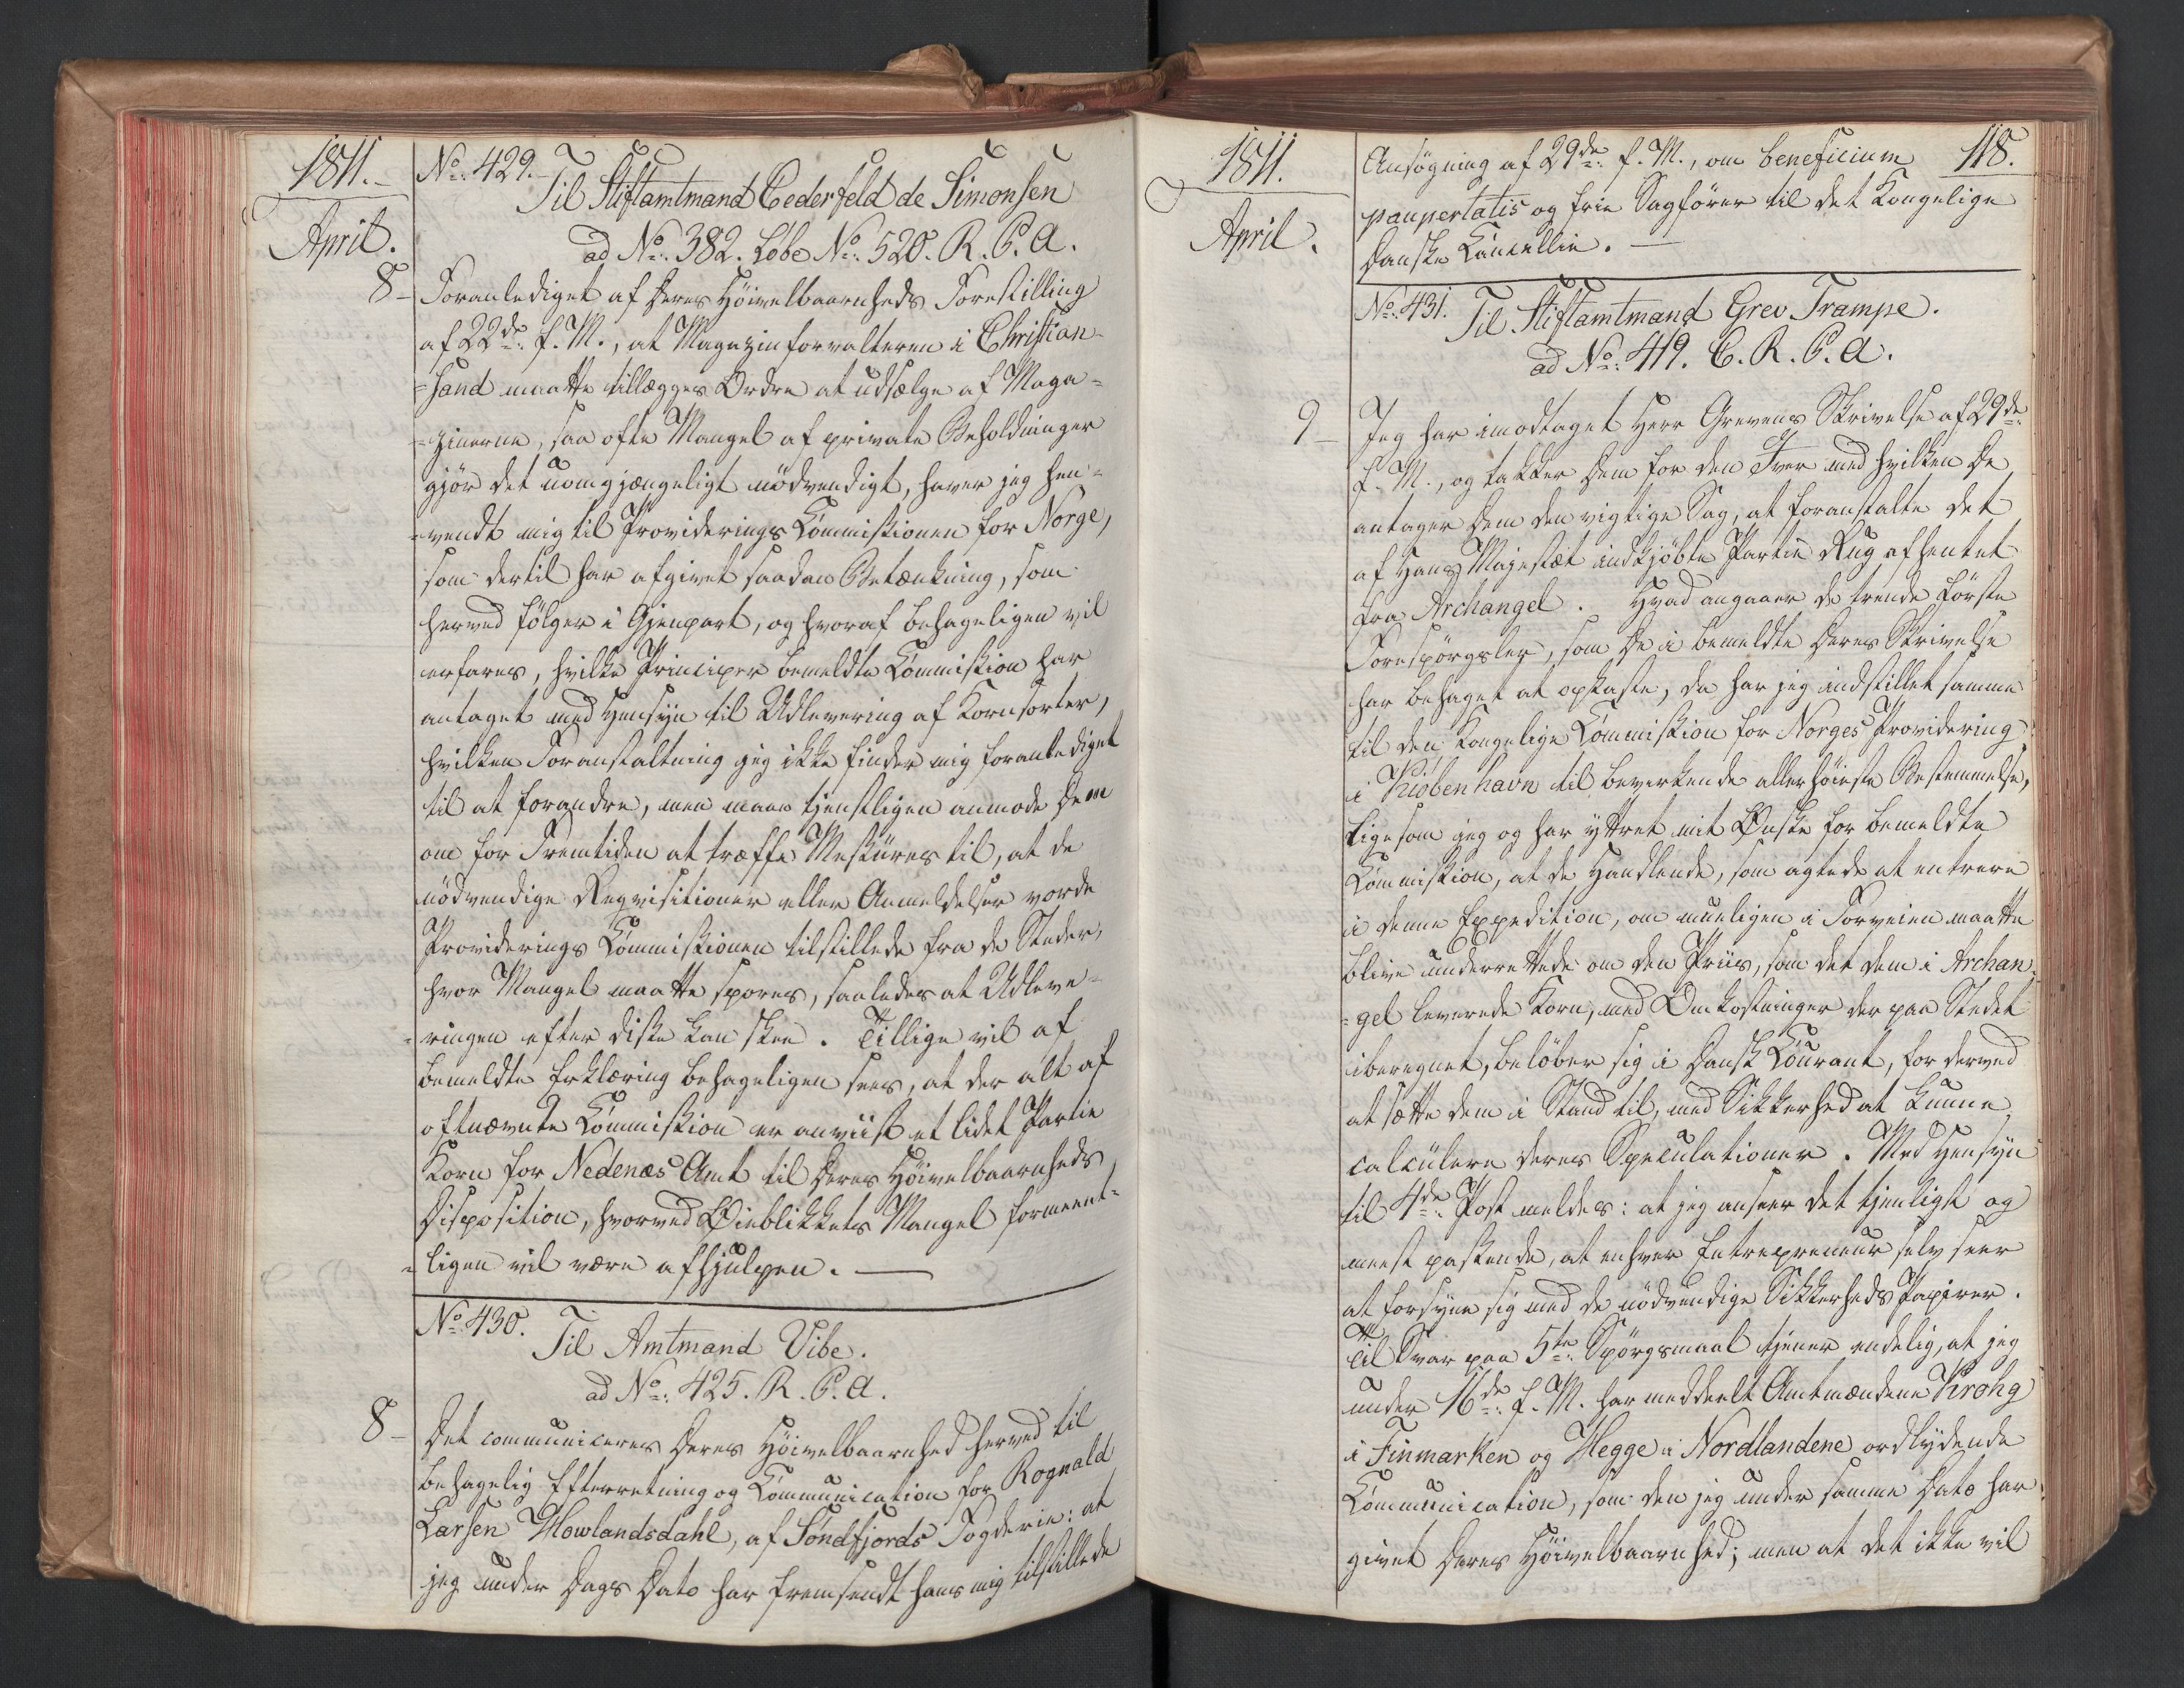 1811.
April.
No. 429.
Til Stiftamtmand Cederfeld de Simonsen
ad No. 382. Løbe No. 520. R. P. A.
8 – Foranlediget af Deres Høivelbaarenheds Forestilling
af 22de f. M., at Magazinforvalteren i Christian-
=sand maatte tillægges Ordre at udsælge af Maga=
=zinerne, saa ofte Mangel af private Beholdninger
gjør det uomgjængeligt nødvendigt, haver jeg hen=
=vendt mig til Providerings Commissionen for Norge,
som dertil har afgivet saadan Betænkning, som
herved følger i Gjenpart, og hvoraf behageligen vil
erfares, hvilke Principer bemeldte Commission har
antaget med Hensyn til Udlevering af Kornsorter,
hvilken Foranstaltning jeg ikke finder mig foranlediget
til at forandre, men maae tjenstligen anmode Dem
om for Fremtiden at træffe Mesüres til, at de
nødvendige Reqvisitioner eller Anmeldelser vorde
Providerings Commissionen tilstillede fra de Steder,
hvor Mangel maatte spores, saaledes at Udleve=
=ringen efter disse kan skee. Tillige vil af
bemeldte Erklæring behageligen sees, at der alt af
oftnævnte Commission er anviist et lidet Partie
Korn for Nedenæs Amt til Deres Høivelbaarenheds
Disposition, hvorved Øieblikkets Mangel formeent=
=ligen vil være afhjulpen. —
No. 430.
Til Amtmand Vibe.
ad No. 425. R. P. A.
8 – Det communiceres Deres Høivelbaarenhed herved til
behagelig Efterretning og Communication for Rognald
Larsen Howlandsdahl, af Søndfjords Fogderie: at
jeg under Dags Dato har fremsendt hans mig tilstillede
1811.
April.
118.
Ansøgning af 29de f. M., om beneficium
paupertatis og frie Sagfører til det Kongelige
Danske Cancellie. —
No. 431.
Til Stiftamtmand Grev Trampe.
ad No. 419. C. R. P. A.
9 – Jeg har imodtaget Herr Grevens Skrivelse af 29de
f. M., og takker Dem for den Iver med hvilken De
antager Dem den vigtige Sag, at foranstalte det
af Hans Majestæt indkjøbte Partie Rug afhentet
fra Archangel. Hvad angaaer de trende første
Forespørgsler, som De i bemeldte Deres Skrivelse
har behaget at opkaste, da har jeg indstillet samme
til den Kongelige Commission for Norges Providering
i Kiøbenhavn til bevirkende allerhøieste Bestemmelse,
ligesom jeg og har yttret mit Ønske for bemeldte
Commission, at de Handlende, som agtede at entrere
i denne Expedition, om mueligen i Forveien maatte
blive underrettede om den Priis, som det dem i Archan
=gel leverede Korn, med Omkostninger der paa Stedet
iberegnet, beløber sig i Dansk Courant, for derved
at sætte dem i Stand til, med Sikkerhed at kunne
calcülere deres Speculationer. Med Hensyn
til 4de Post meldes: at jeg anseer det tjenligt og
meest passende, at enhver Entrepreneur selv seer
at forsyne sig med de nødvendige Sikkerheds Papirer.
Til Svar paa 5te Spørgsmaal tjener endelig, at jeg
under 16de f. M. har meddeelt Amtmændene Krohg
i Finmarken og Hegge i Nordlandene ordlydende
Communication, som den jeg under samme Dato har
givet Deres Høivelbaarenhed; men at det ikke vil